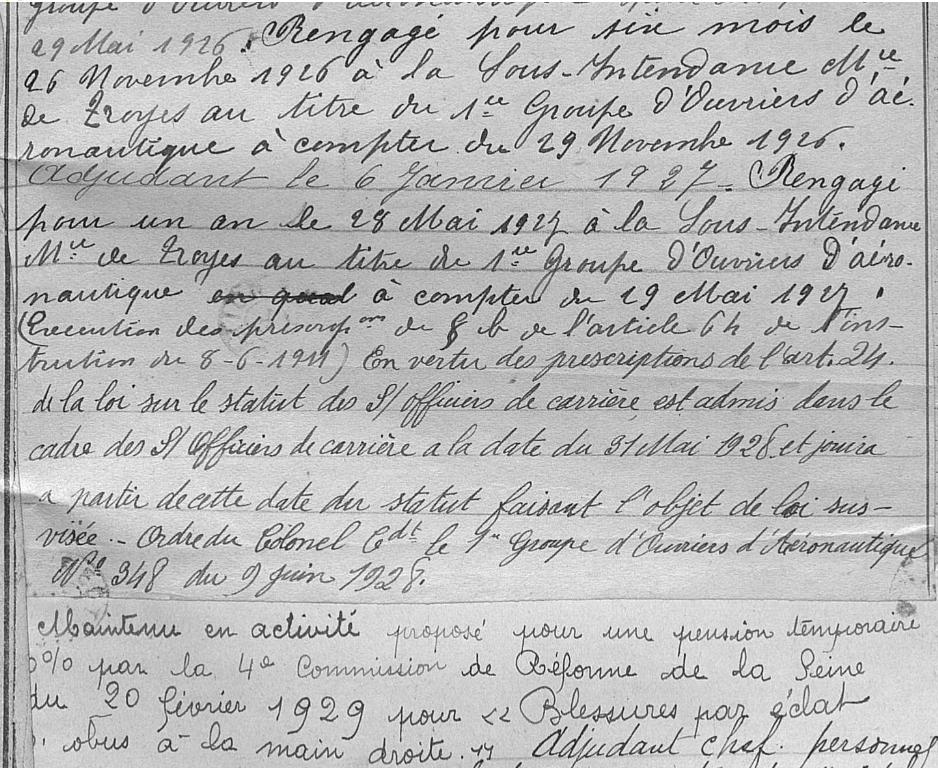 groupe d'Ouvriers d'aéronautique
29 Mai 1926. Rengagé pour six mois le
26 Novembre 1926 à la Sous-Intendance Mre
de Troyes au titre du 1er Groupe d'Ouvriers d'aé-
ronautique à compter du 29 Novembre 1926.
Adjudant le 6 Janvier 1927. Rengagé
pour un an le 28 Mai 1927 à la Sous-Intendance
Mre de Troyes au titre du 1er Groupe d'Ouvriers d'aéro-
nautique en qual à compter du 29 Mai 1927.
(Execution des prescripons du § b de l'article 64 de l'ins-
truction du 8-6-1911) En vertu des prescriptions de l'art. 24.
de la loi sur le statut des S/ officiers de carrière est admis dans le
cadre des S/ Officiers de carrière a la date du 31 Mai 1928 et jouira
a partir de cette date du statut faisant l'objet de loi sus-
visée.- Ordre du Colonel Cdt le 1er Groupe d'Ouvriers d'Aéronautique
No 348 du 9 juin 1928.
Maintenu en activité proposé pour une pension temporaire
0% par la 4e Commission de Réforme de la Seine
du 20 février 1929 pour << Blessures par éclat
obus à la main droite. >> Adjudant chef. personnel